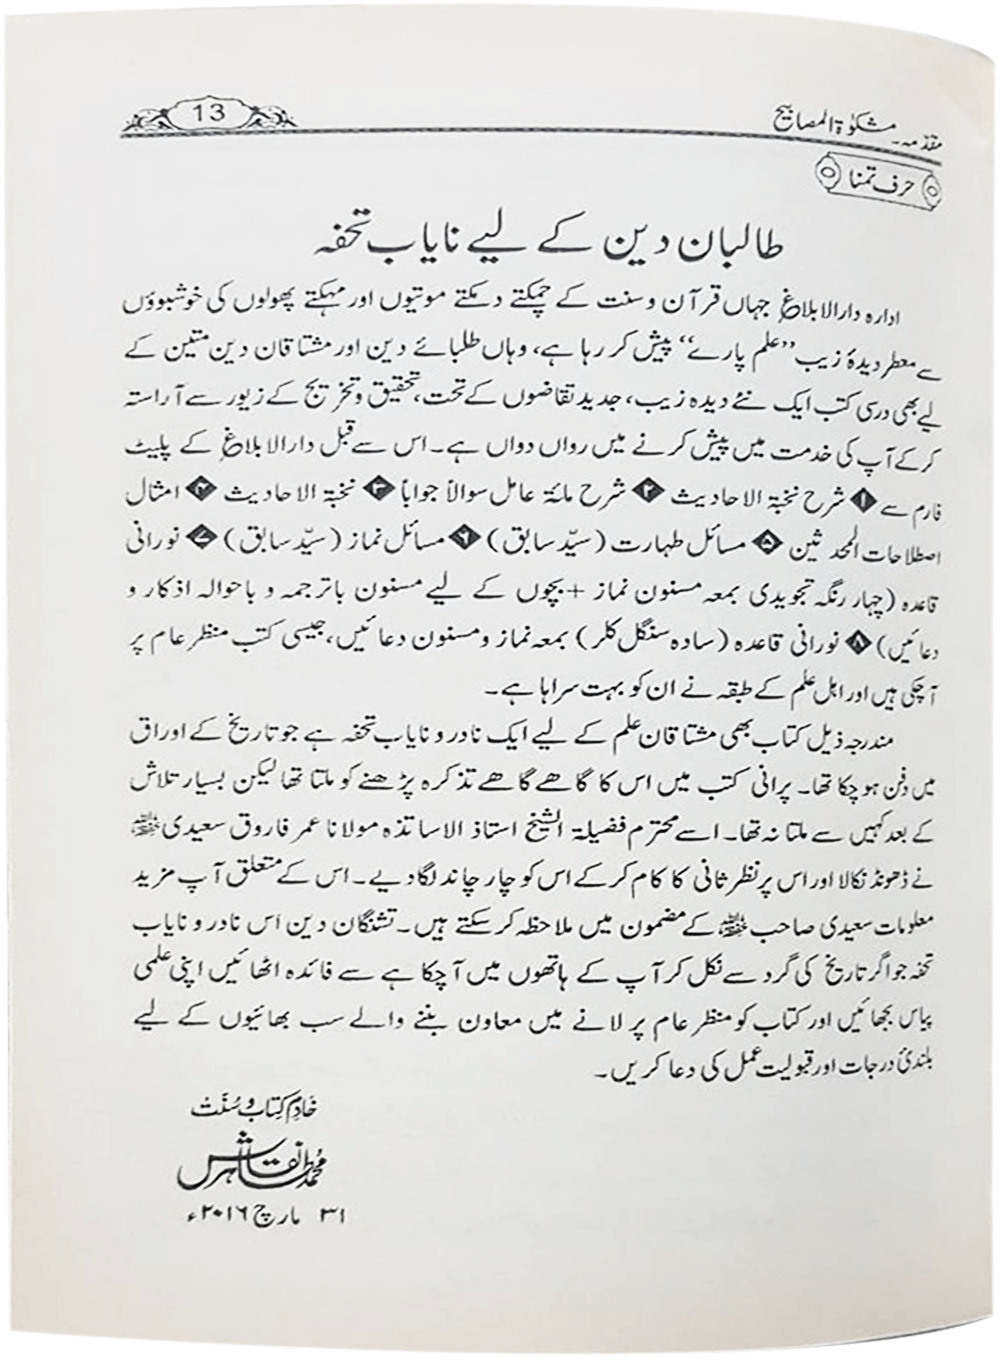 13
مقدمہ۔ مشکوٰۃ المصابیح
حرف تمنا
طالبان دین کے لیے نایاب تحفہ
ادارہ دارالابلاغ جہاں قرآن و سنت کے چمکتے دمکتے موتیوں اور مہکتے پھولوں کی خوشبوؤں
سے معطر دیدۂ زیب ’’علم پارے‘‘ پیش کر رہا ہے، وہاں طلبائے دین اور مشتاقان دین متین کے
لیے بھی درسی کتب ایک نئے دیدہ زیب، جدید تقاضوں کے تحت، تحقیق و تخریج کے زیور سے آراستہ
کر کے آپ کی خدمت میں پیش کرنے میں رواں دواں ہے۔ اس سے قبل دارالابلاغ کے پلیٹ
فارم سے ۱ شرح نخبۃ الاحادیث ۲ شرح مائۃ عامل سوالاً جواباً ۳ نخبۃ الاحادیث ۴ امثال
اصطلاحات المحدثین ۵ مسائل طہارت (سیّد سابق) ۶ مسائل نماز (سیّد سابق) ۷ نورانی
قاعدہ (چہار رنگہ تجویدی بمعہ مسنون نماز + بچوں کے لیے مسنون باترجمہ و باحوالہ اذکار و
دعائیں) ۸ نورانی قاعدہ (سادہ سنگل کلر) بمعہ نماز و مسنون دعائیں، جیسی کتب منظر عام پر
آچکی ہیں اور اہل علم کے طبقہ نے ان کو بہت سراہا ہے۔
مندرجہ ذیل کتاب بھی مشتاقان علم کے لیے ایک نادر و نایاب تحفہ ہے جو تاریخ کے اوراق
میں دفن ہو چکا تھا۔ پرانی کتب میں اس کا گاھے گاھے تذکرہ پڑھنے کو ملتا تھا لیکن بسیار تلاش
کے بعد کہیں سے ملتا نہ تھا۔ اسے محترم فضیلۃ الشیخ استاذ الاساتذہ مولانا عمر فاروق سعیدی حفظہ اللہ
نے ڈھونڈ نکالا اور اس پر نظر ثانی کا کام کر کے اس کو چار چاند لگا دیے۔ اس کے متعلق آپ مزید
معلومات سعیدی صاحب حفظہ اللہ کے مضمون میں ملاحظہ کر سکتے ہیں۔ تشنگان دین اس نادر و نایاب
تحفہ جو اگر تاریخ کی گرد سے نکل کر آپ کے ہاتھوں میں آچکا ہے سے فائدہ اٹھائیں اپنی علمی
پیاس بجھائیں اور کتاب کو منظر عام پر لانے میں معاون بننے والے سب بھائیوں کے لیے
بلندیٔ درجات اور قبولیت عمل کی دعا کریں۔
خادم کتاب و سُنّت
محمد طاہر نقاش
۳۱ مارچ ۲۰۱۶ء